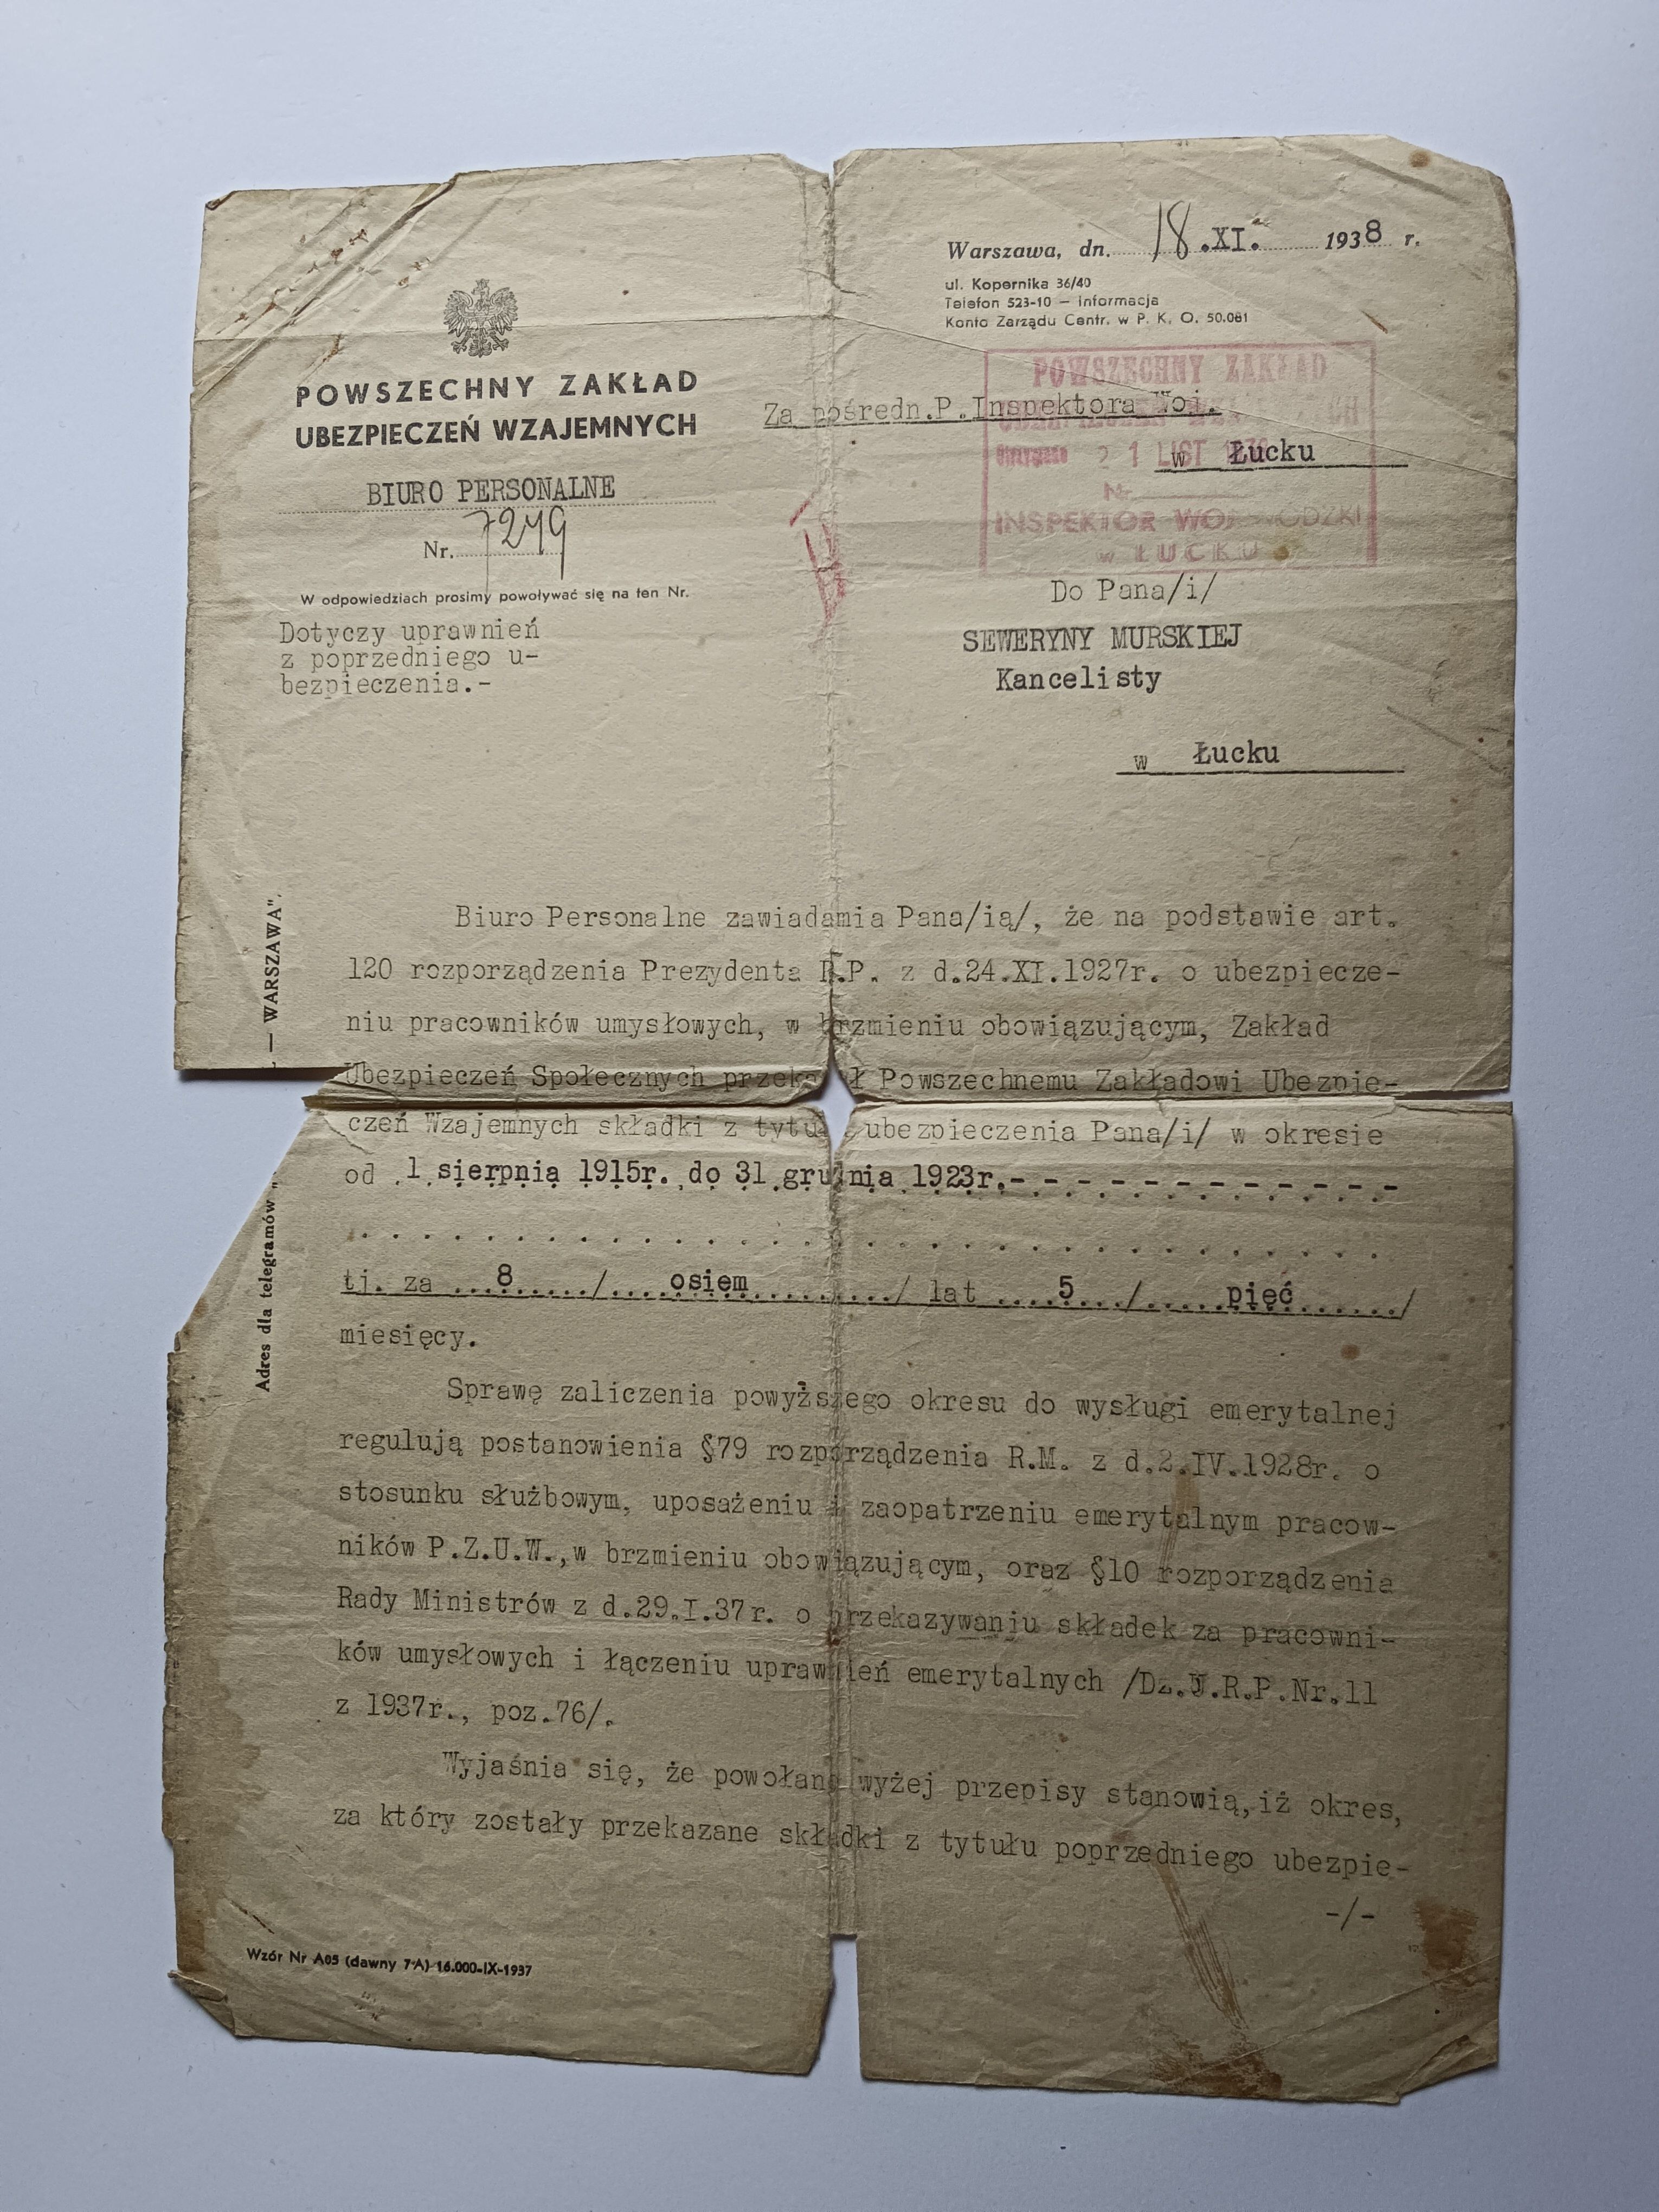 Warszawa, dn. 18.XI. 1938 r.
ul. Kopernika 36/40
Telefon 523-10 — Informacja
Konto Zarządu Centr. w P. K. O. 50.081
POWSZECHNY ZAKŁAD
UBEZPIECZEŃ WZAJEMNYCH
BIURO PERSONALNE
Nr. 7249
W odpowiedziach prosimy powoływać się na ten Nr.
Dotyczy uprawnień
z poprzedniego u-
bezpieczenia.-
POWSZECHNY ZAKŁAD
21 LIST
Nr.
INSPEKTOR WOJEWÓDZKI
w ŁUCKU
Za pośredn.P.Inspektora Woj.
w Łucku
Do Pana/i/
SEWERYNY MURSKIEJ
Kancelisty
w Łucku
Biuro Personalne zawiadamia Pana/ią/, że na podstawie art.
120 rozporządzenia Prezydenta R.P. z d.24.XI.1927r. o ubezpiecze-
niu pracowników umysłowych, w brzmieniu obowiązującym, Zakład
Ubezpieczeń Społecznych przekazał Powszechnemu Zakładowi Ubezpie-
czeń Wzajemnych składki z tytułu ubezpieczenia Pana/i/ w okresie
od 1 sierpnia 1915r. do 31 grudnia 1923r.- - - - - - - - - - - -
tj. za ...8...../....osiem.........../ lat ....5.../.....pięć......./
miesięcy.
Sprawę zaliczenia powyższego okresu do wysługi emerytalnej
regulują postanowienia §79 rozporządzenia R.M. z d.2.IV.1928r. o
stosunku służbowym, uposażeniu i zaopatrzeniu emerytalnym pracow-
ników P.Z.U.W.,w brzmieniu obowiązującym, oraz §10 rozporządzenia
Rady Ministrów z d.29.I.37r. o przekazywaniu składek za pracowni-
ków umysłowych i łączeniu uprawnień emerytalnych /Dz.U.R.P.Nr.11
z 1937r., poz.76/.
Wyjaśnia się, że powołane wyżej przepisy stanowią,iż okres,
za który zostały przekazane składki z tytułu poprzedniego ubezpie-
-/-
Wzór Nr A05 (dawny 7-A) 16.000-IX-1937
Adres dla telegramów „
— WARSZAWA".